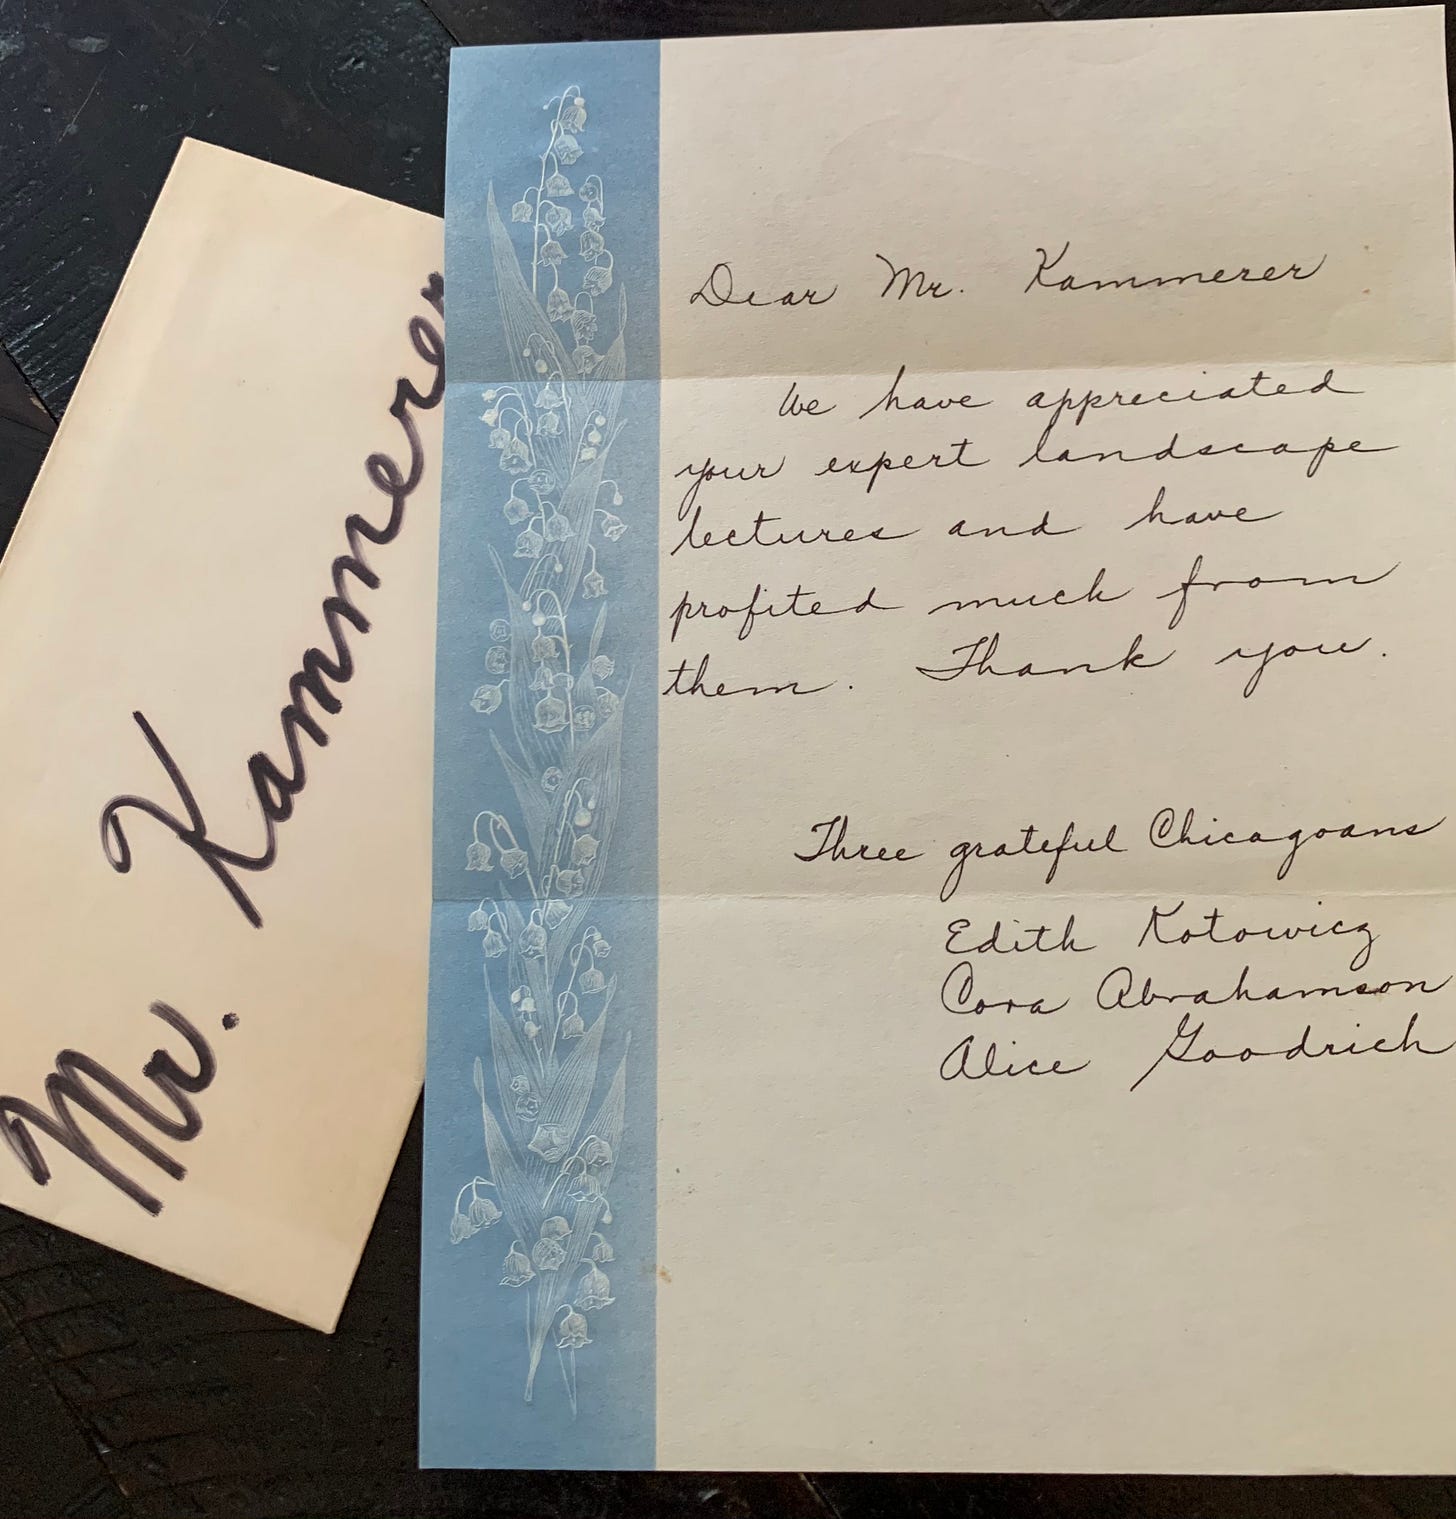 Mr. Kammerer
Dear Mr. Kammerer
We have appreciated
your expert landscape
lectures and have
profited much from
them. Thank you.
Three grateful Chicagoans
Edith Kotowicz
Cora Abrahamson
Alice Goodrich